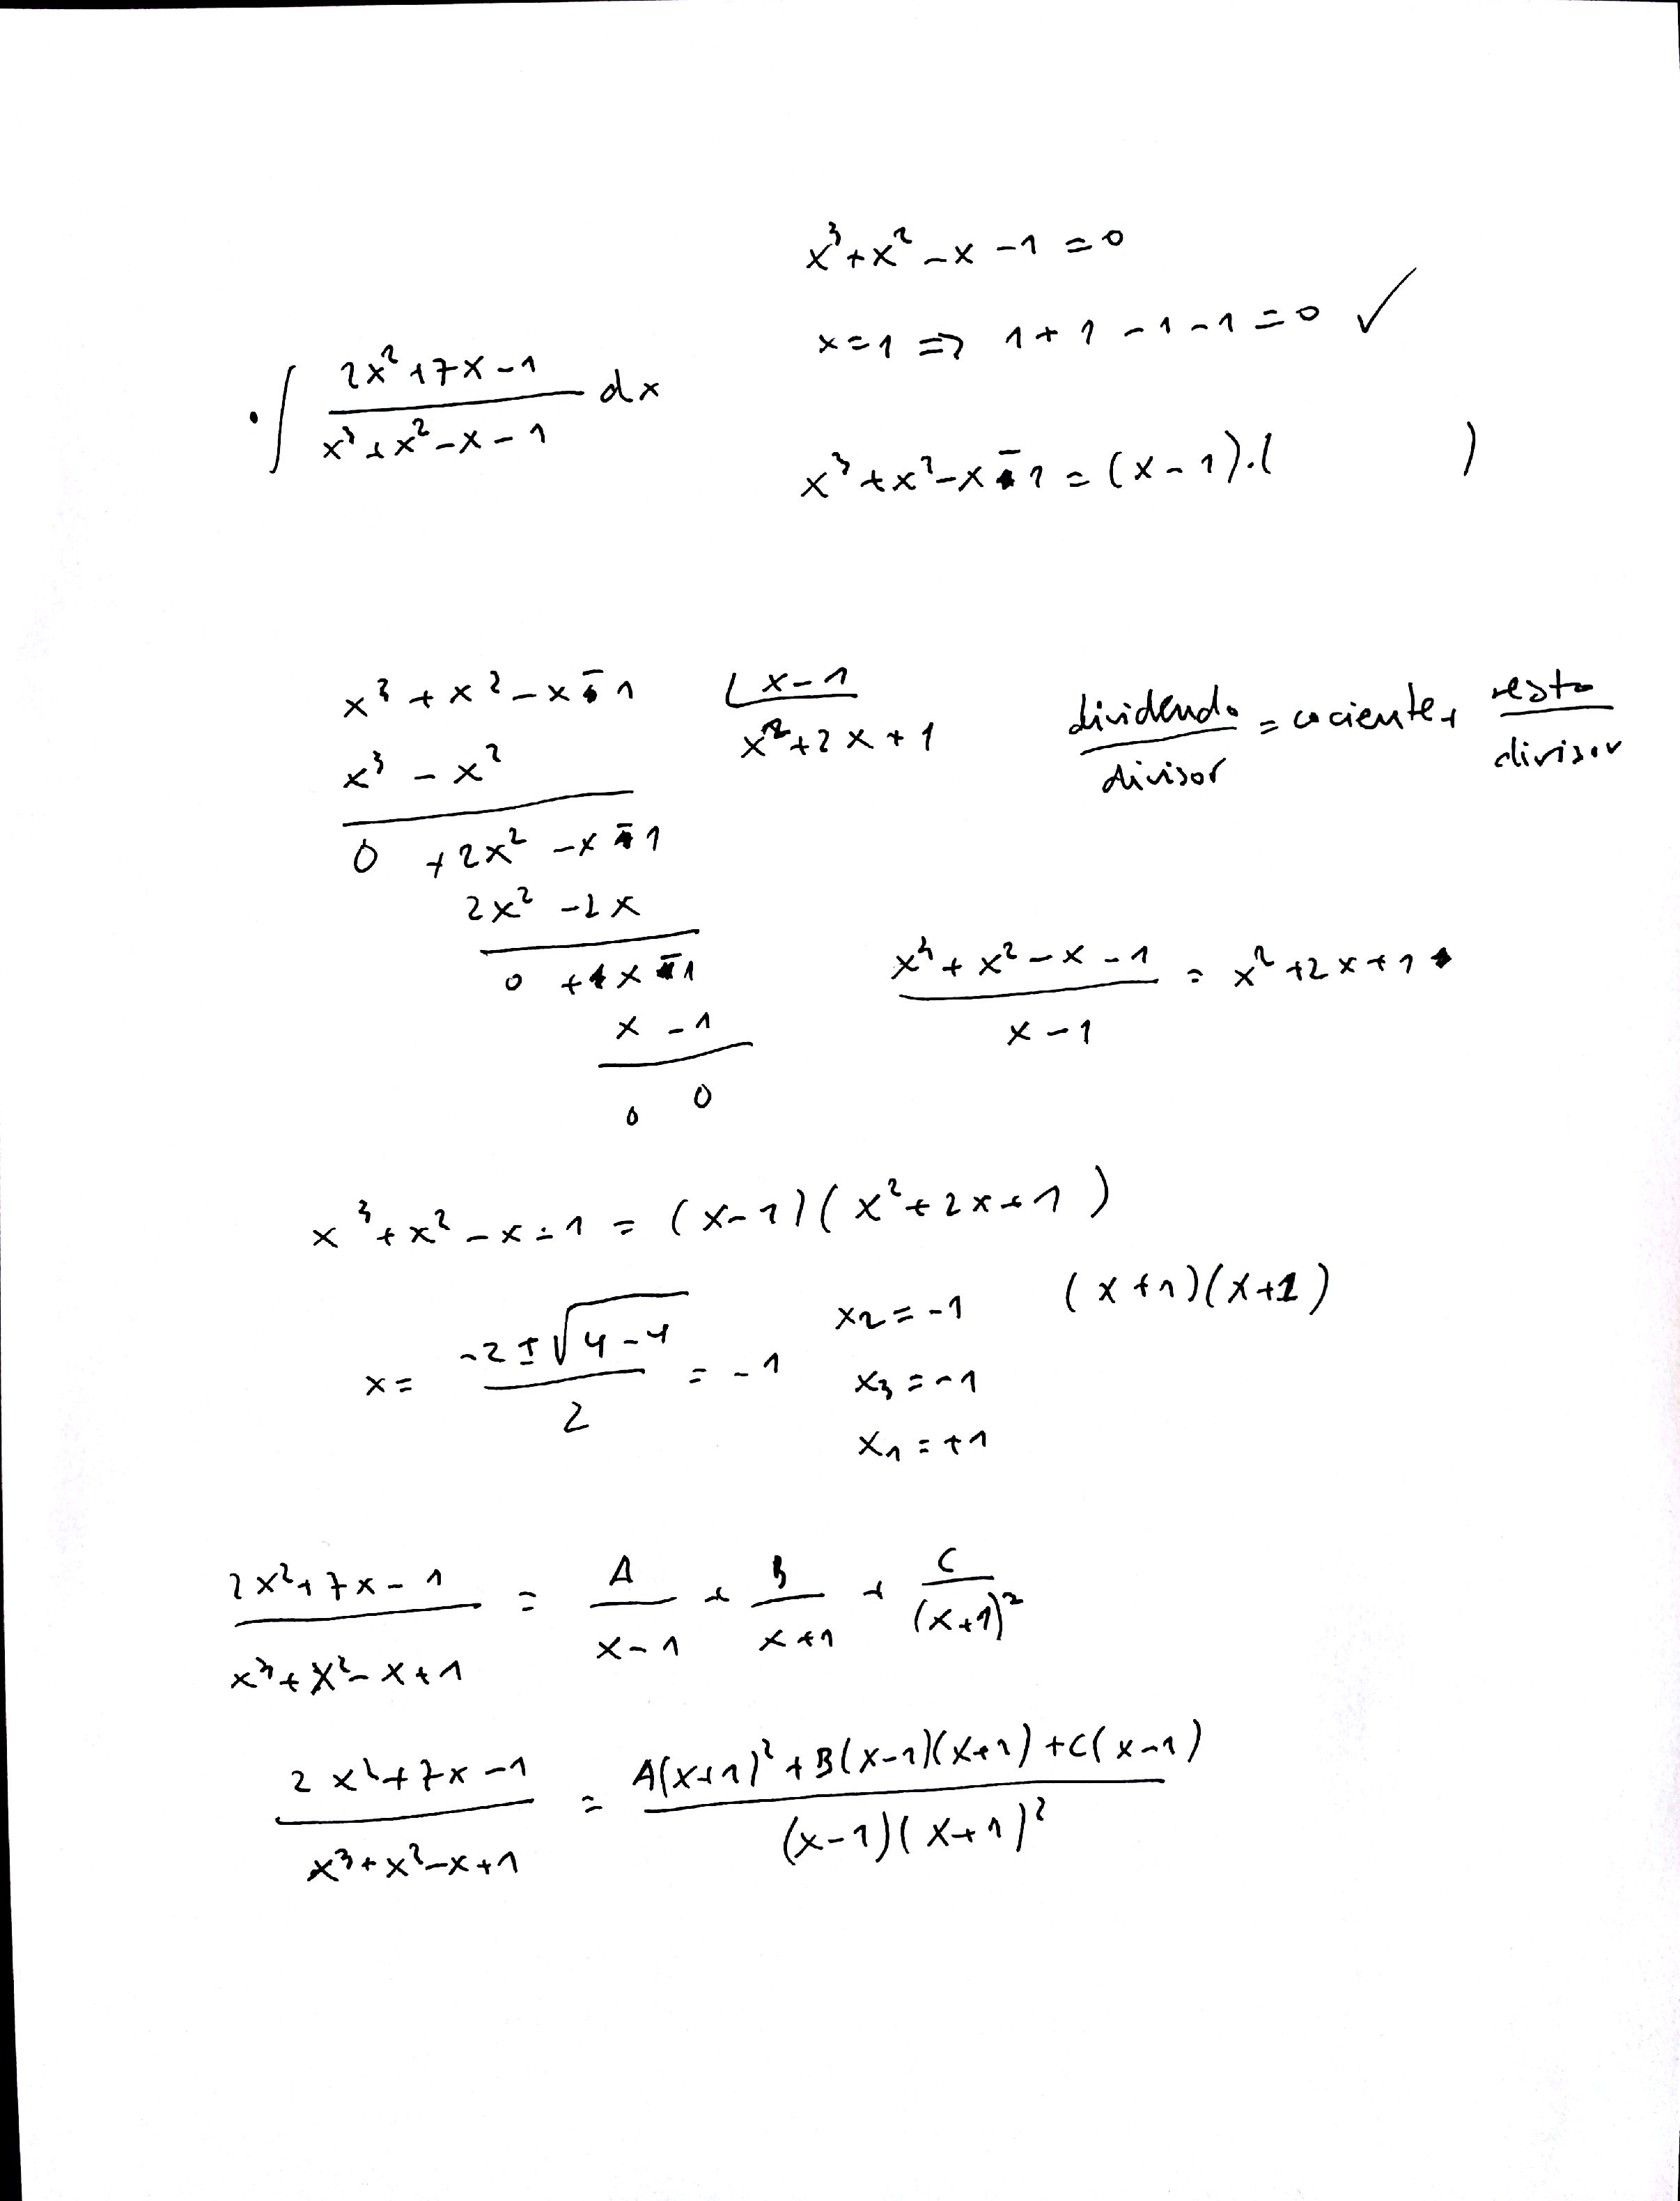 x³+x²-x-1=0
x=1 ⇒ 1+1-1-1=0 ✓
· ∫ (2x²+7x-1)/(x³+x²-x-1) dx
x³+x²-x-1=(x-1).(      )
x³+x²-x-1 | x-1
x³-x²   x²+2x+1
dividendo/divisor = cociente + resto/divisor
0 +2x²-x-1
2x²-2x
0 +x-1
x-1
0 0
(x³+x²-x-1)/(x-1) = x²+2x+1
x³+x²-x-1=(x-1)(x²+2x+1)
x= (-2±√(4-4))/2 = -1
x₂=-1   (x+1)(x+1)
x₃=-1
x₁=+1
(2x²+7x-1)/(x³+x²-x+1) = A/(x-1) + B/(x+1) + C/(x+1)²
(2x²+7x-1)/(x³+x²-x+1) = (A(x+1)²+B(x-1)(x+1)+C(x-1))/((x-1)(x+1)²)